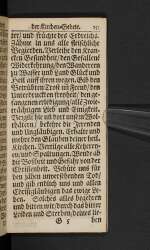 der Kirchen-Gebete. 
ze/ und früchte des Erdreichs.
Zähme in uns alle fleischliche
Begierden. Verleihe den Krancken
Gesundheit/ den Gefallenen
Widerkehrung/ den Wanderern
zu Wasser und Land Glück und
Heil auff ihren wegen. Gib den
Betrübten Trost un Freud/ den
Armen
fangenen erledigung/ alle
Lieb und Einigkeit.
Vergib sie
behüte die Frembden
und Unglaubigen. Erhalte und
mehre den Glauben deiner heil.
Kirchen. Vertilge alle Ketzereyen/
und Spaltungen. Wende ab
die Boßheit und Gefahr von der
Christenheit. Behüte uns für
dem jähen unversehenen Tod/
und gib endlich uns und allen
Christglaubigen das ewige Leben.
Solches alles begehren
und bitten wir/ durch das bitter
Leiden und Sterben deines lie-
G 5 ben